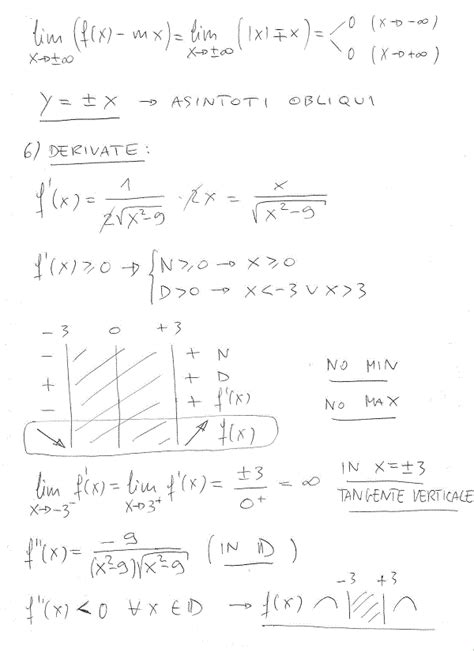 lim (f(x) - mx) = lim (|x| ∓ x) = < 0 (x→-∞)
x→±∞ x→±∞ 0 (x→+∞)
y = ±x → ASINTOTI OBLIQUI
6) DERIVATE:
f'(x) = 1/(2√(x²-9)) · 2x = x/√(x²-9)
f'(x) ≥ 0 → { N ≥ 0 → x ≥ 0
D > 0 → x < -3 ∨ x > 3
-3 0 +3
- + N
+ + D
- + f'(x)
↘ ↗ f(x)
NO MIN
NO MAX
lim f'(x) = lim f'(x) = ±3/0⁺ = ∞
x→-3⁻ x→3⁺
IN X=±3
TANGENTE VERTICALE
f''(x) = -9/((x²-9)√(x²-9)) (IN D)
f''(x) < 0 ∀x ∈ D → f(x) ⌒ -3 +3 ⌒